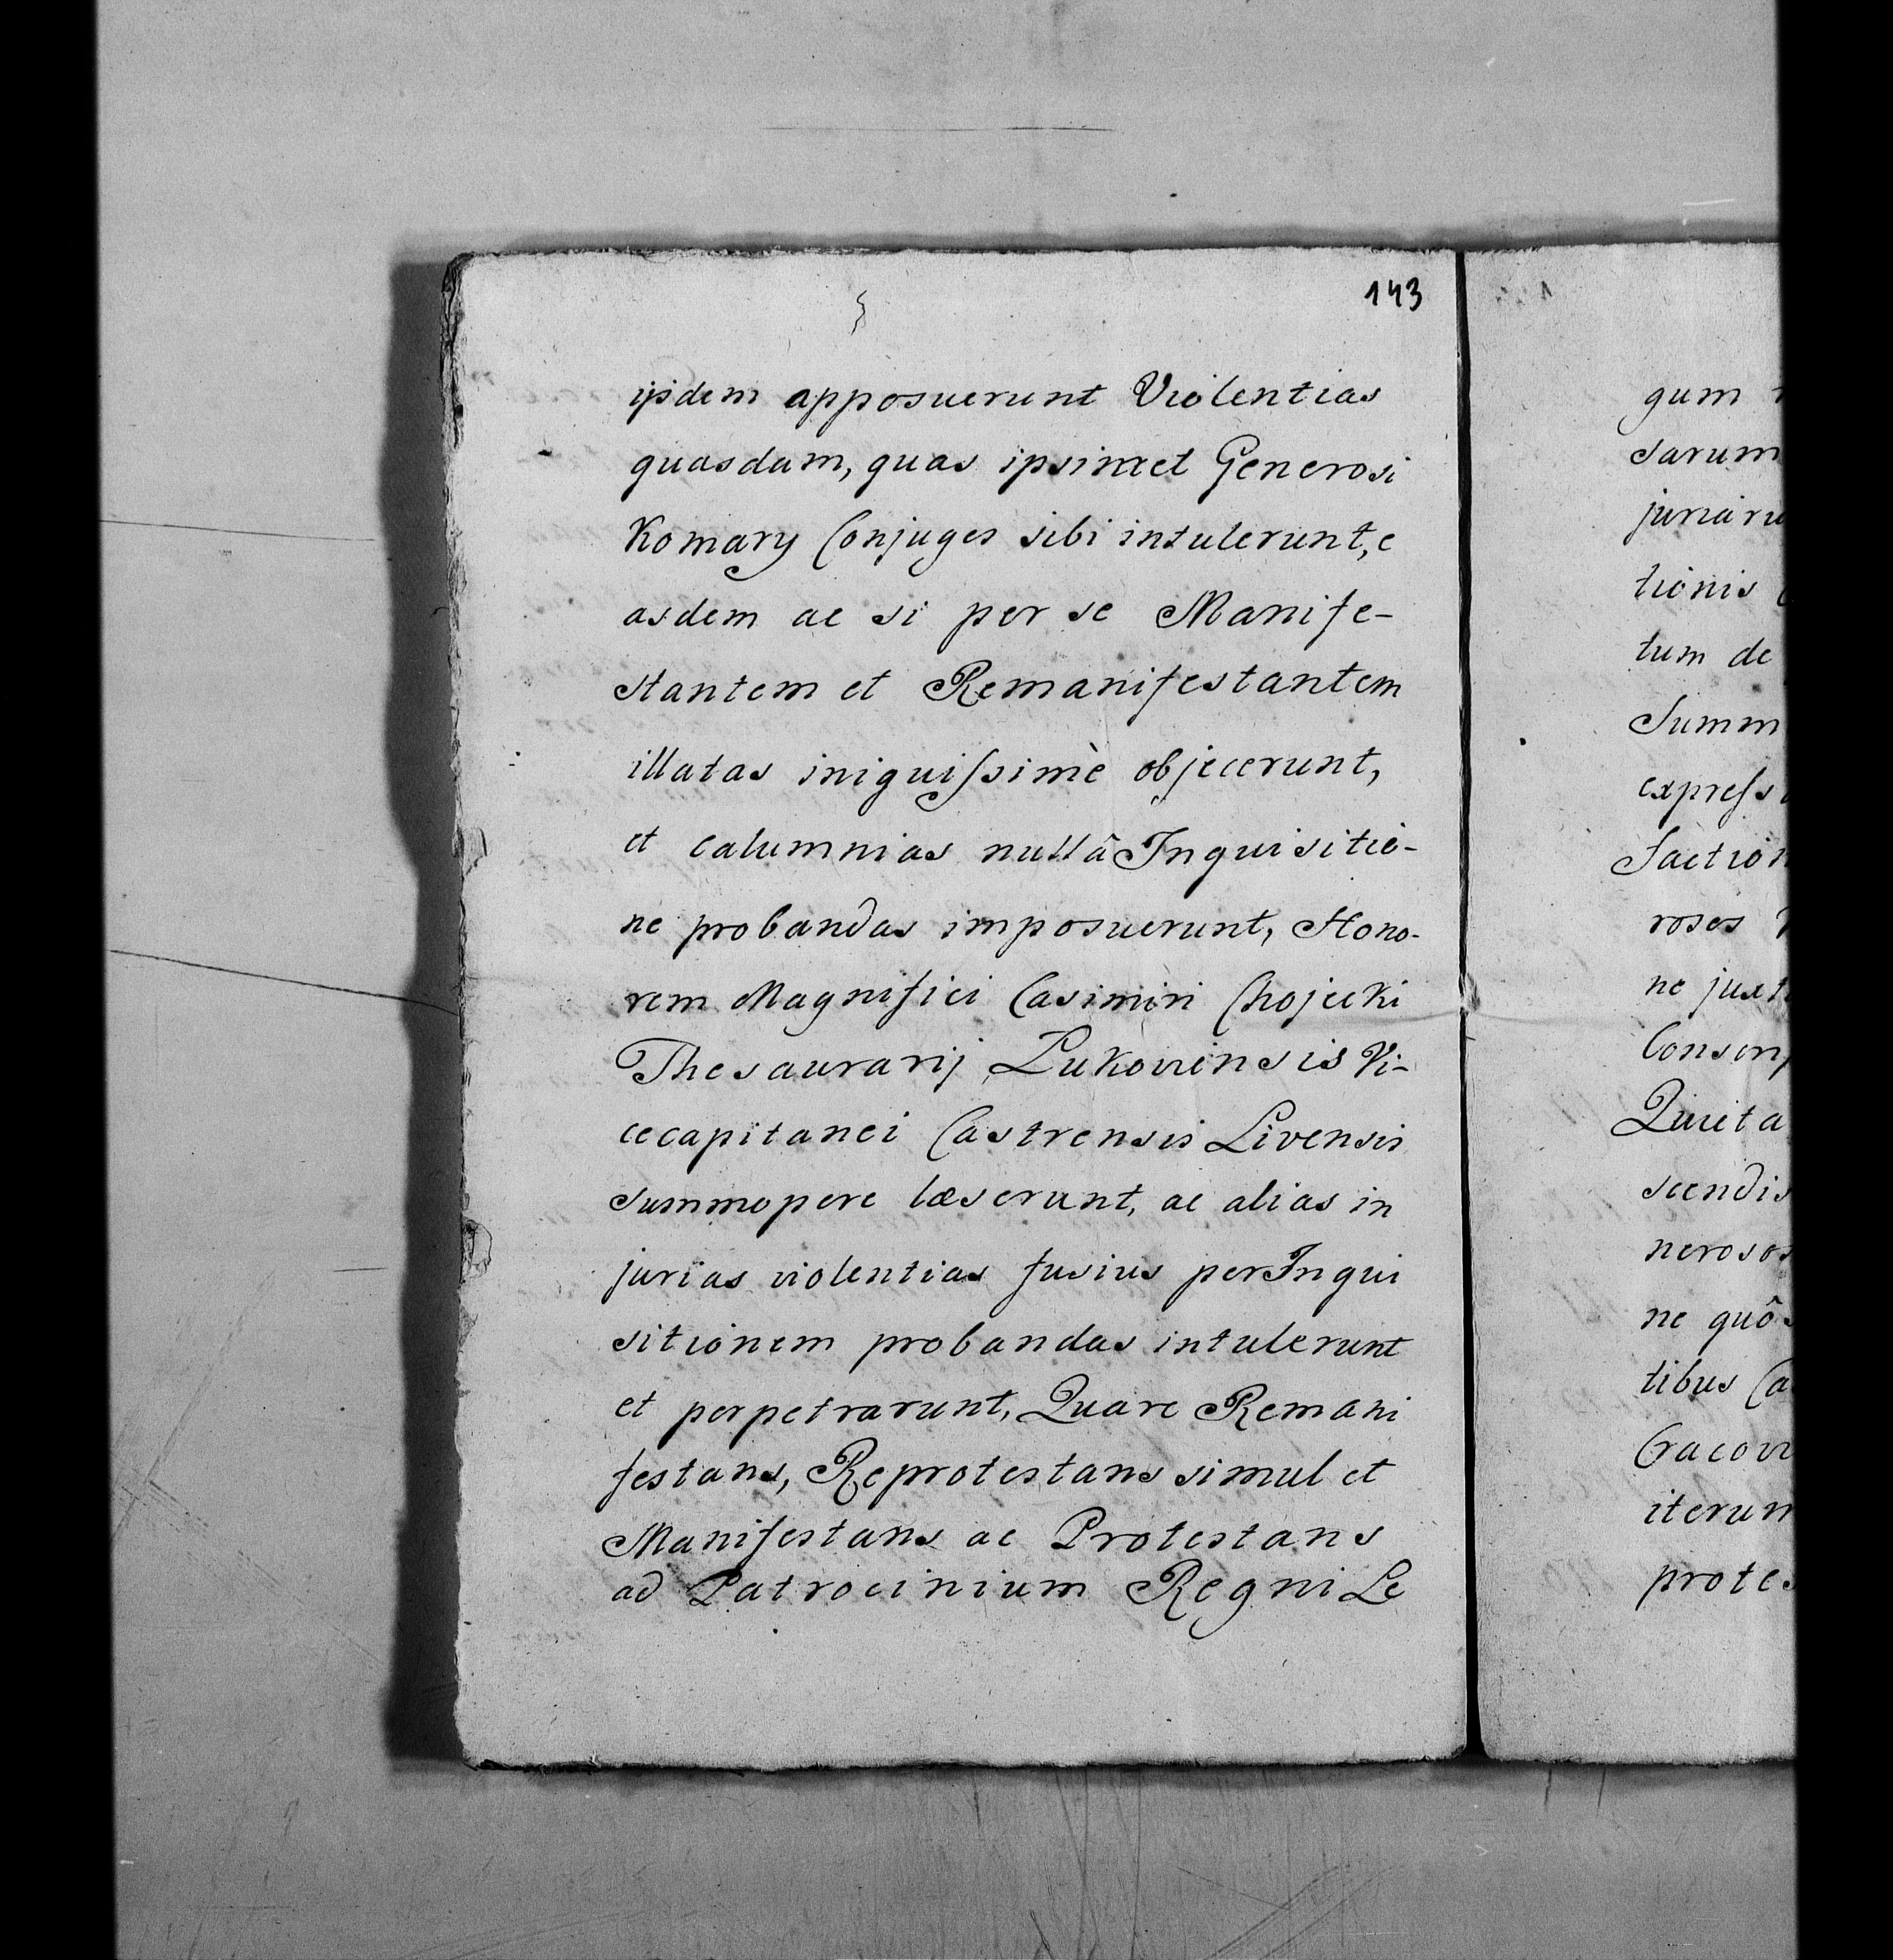 143
ijsdem apposuerunt Violentias
quasdam, quas ipsimet Generosi
Komary Conjuges sibi intulerunt, e
asdem ac si per se Manife-
stantem et Remanifestantem
illatas iniquissimè objecerunt,
et calumnias nullâ Inquisitio-
ne probandas imposuerunt, Hono-
rem Magnifici Casimiri Chojecki
Thesaurarij Lukoviensis Vi-
cecapitanei Castrensis Livensis
summopere læserunt, ac alias in
jurias violentias fusius per Inqui
sitionem probandas intulerunt
et perpetrarunt, Quare Remani
festans, Reprotestans simul et
Manifestans ac Protestans
ad Patrocinium Regni Le
gum
sarum
juriaru
tionis
tum de
Summ
express
Faction
roses
ne juxt
Conscrip
Quieta
scendis
nerosos
ne quô
tibus Ca
Cracovi
iterum
protes